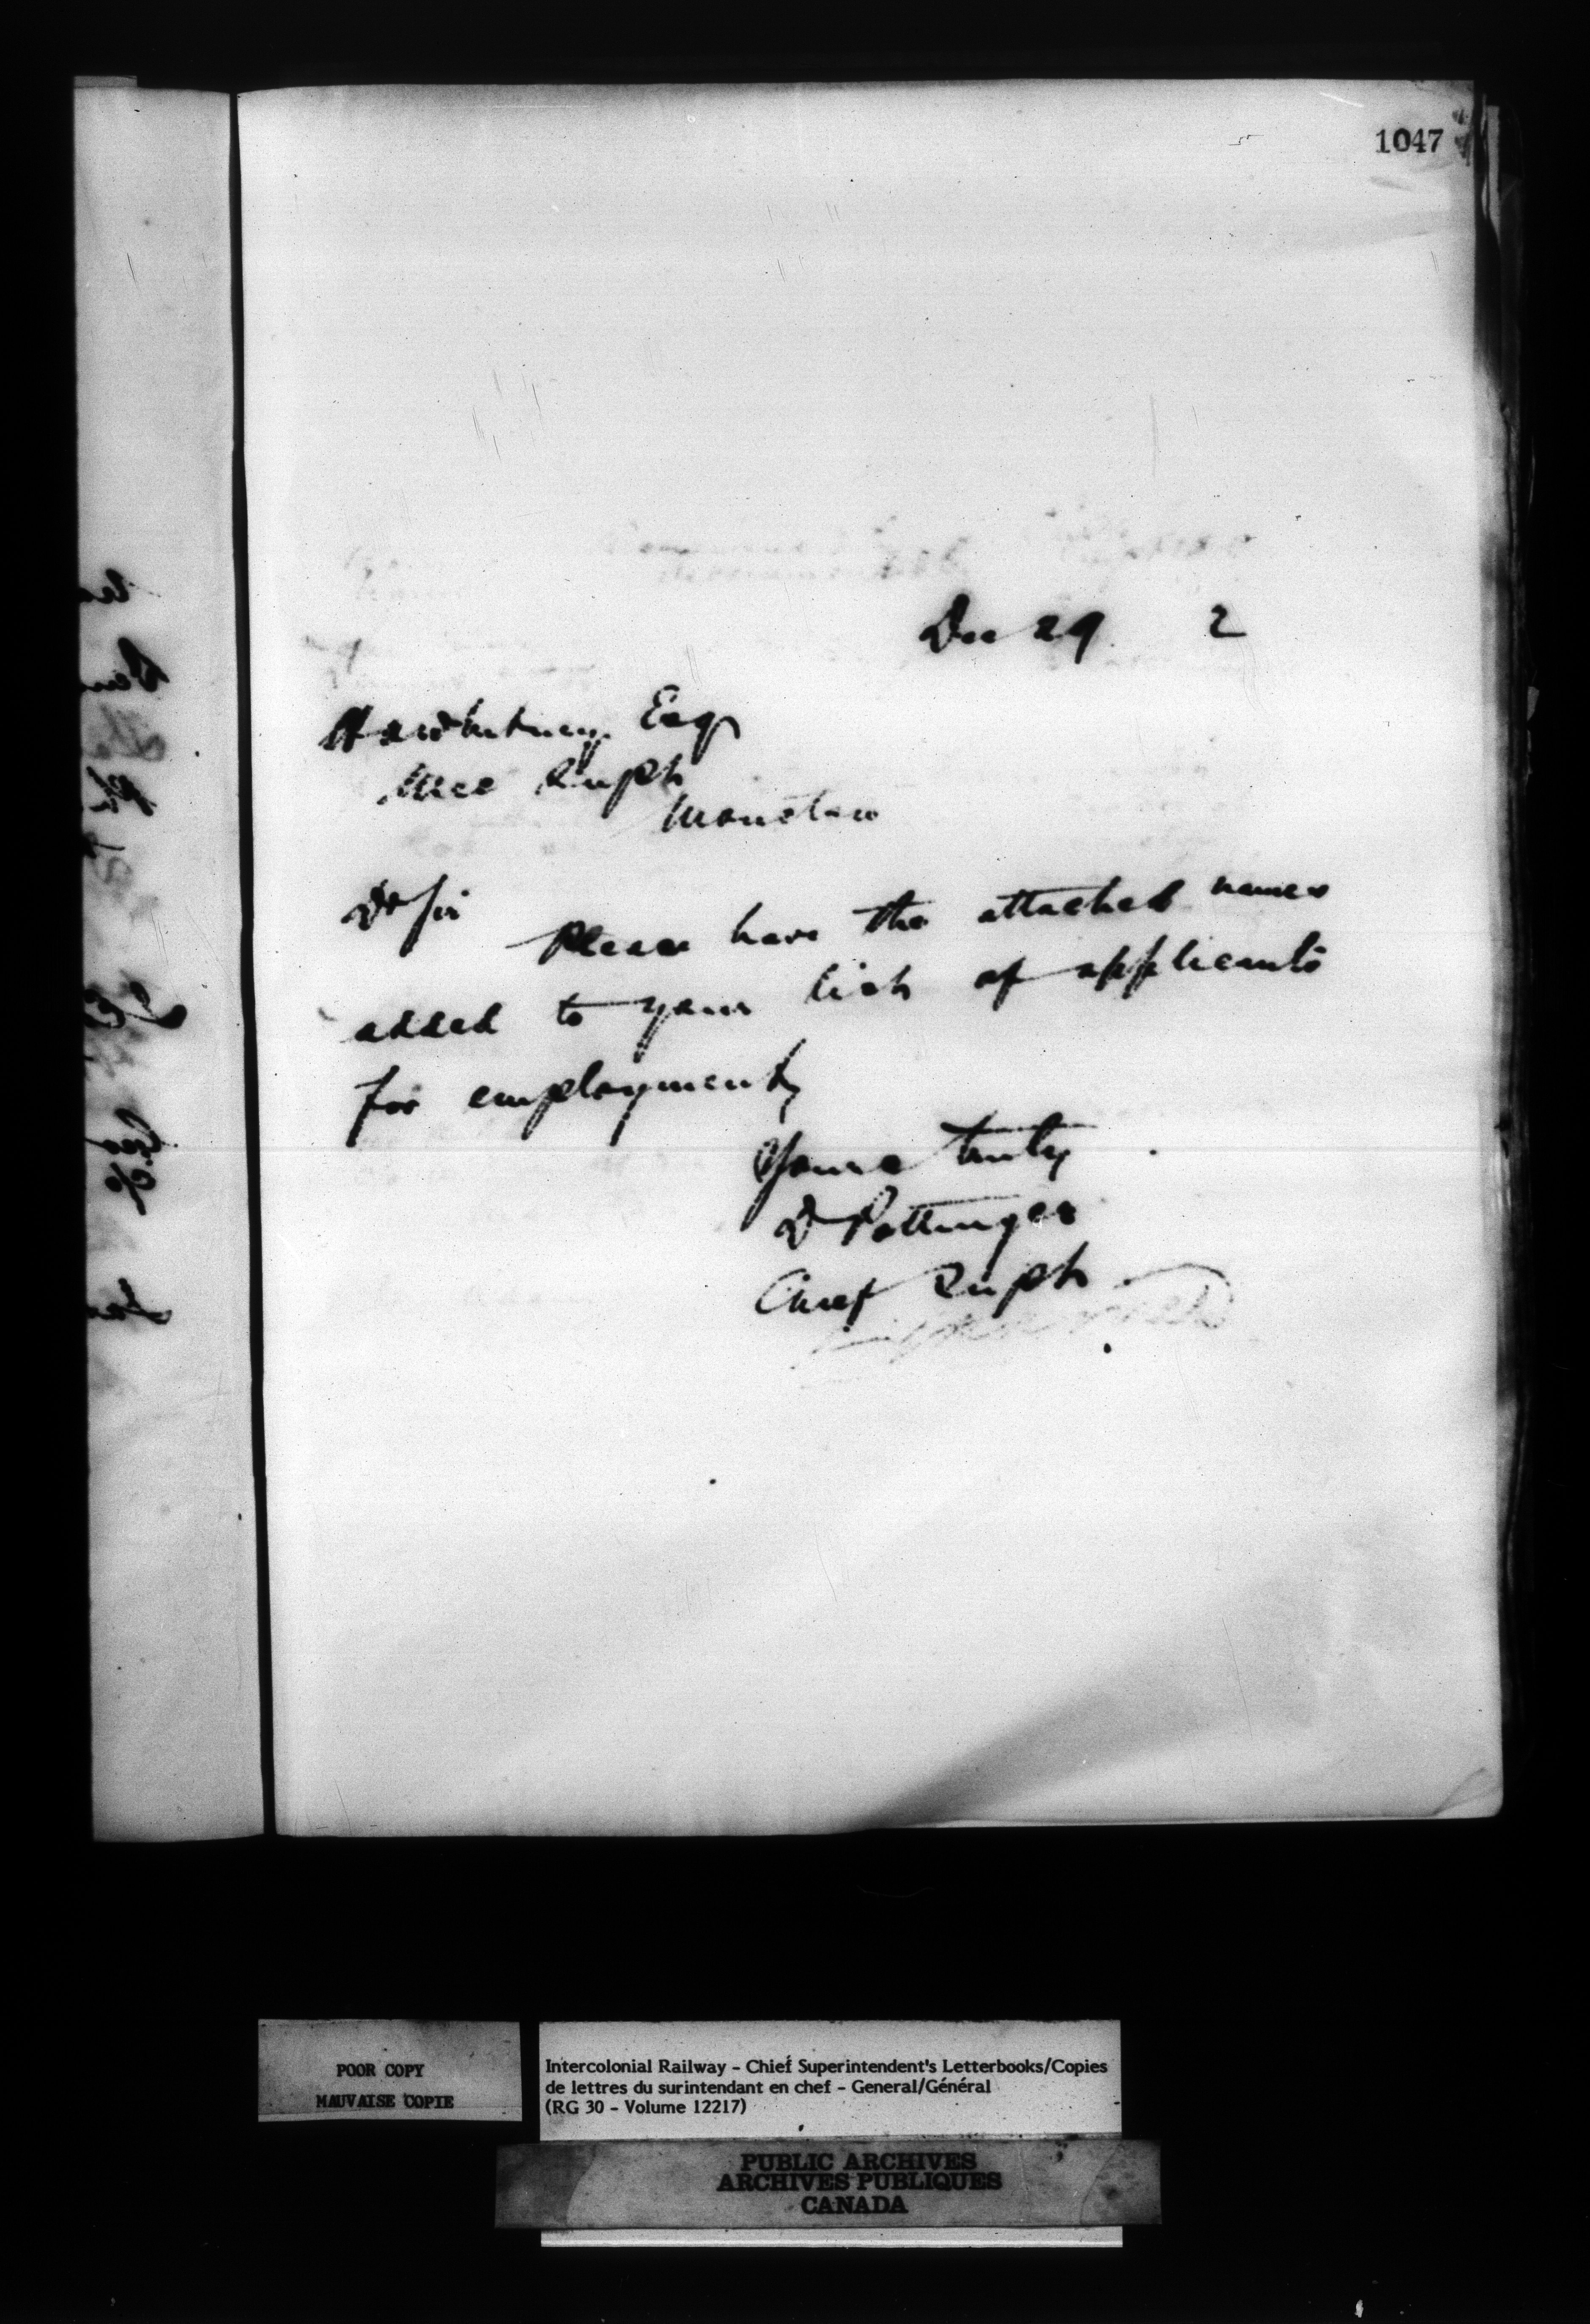 1047
Dec 29 2
H A Whitney Esq
Mec Supt
Moncton
Dr Sir
Please have the attached names
added to your list of applicants
for employment
Yours truly
D Pottinger
Chief Supt
POOR COPY
MAUVAISE COPIE
Intercolonial Railway - Chief Superintendent's Letterbooks/Copies
de lettres du surintendant en chef - General/Général
(RG 30 - Volume 12217)
PUBLIC ARCHIVES
ARCHIVES PUBLIQUES
CANADA